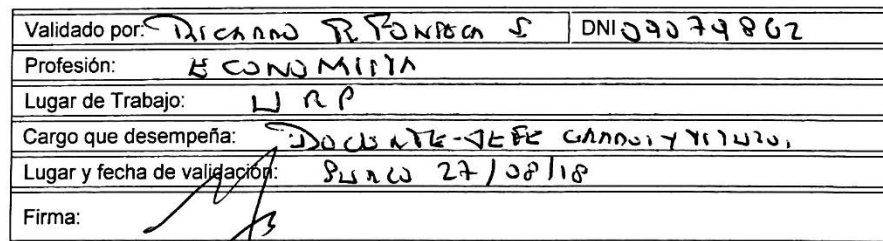 Validado por: Ricardo R Fonseca S DNI 09079862
Profesión: ECONOMISTA
Lugar de Trabajo: URP
Cargo que desempeña: DOCENTE-JEFE GRADOS Y TITULOS.
Lugar y fecha de validación: SURCO 27/08/18
Firma: